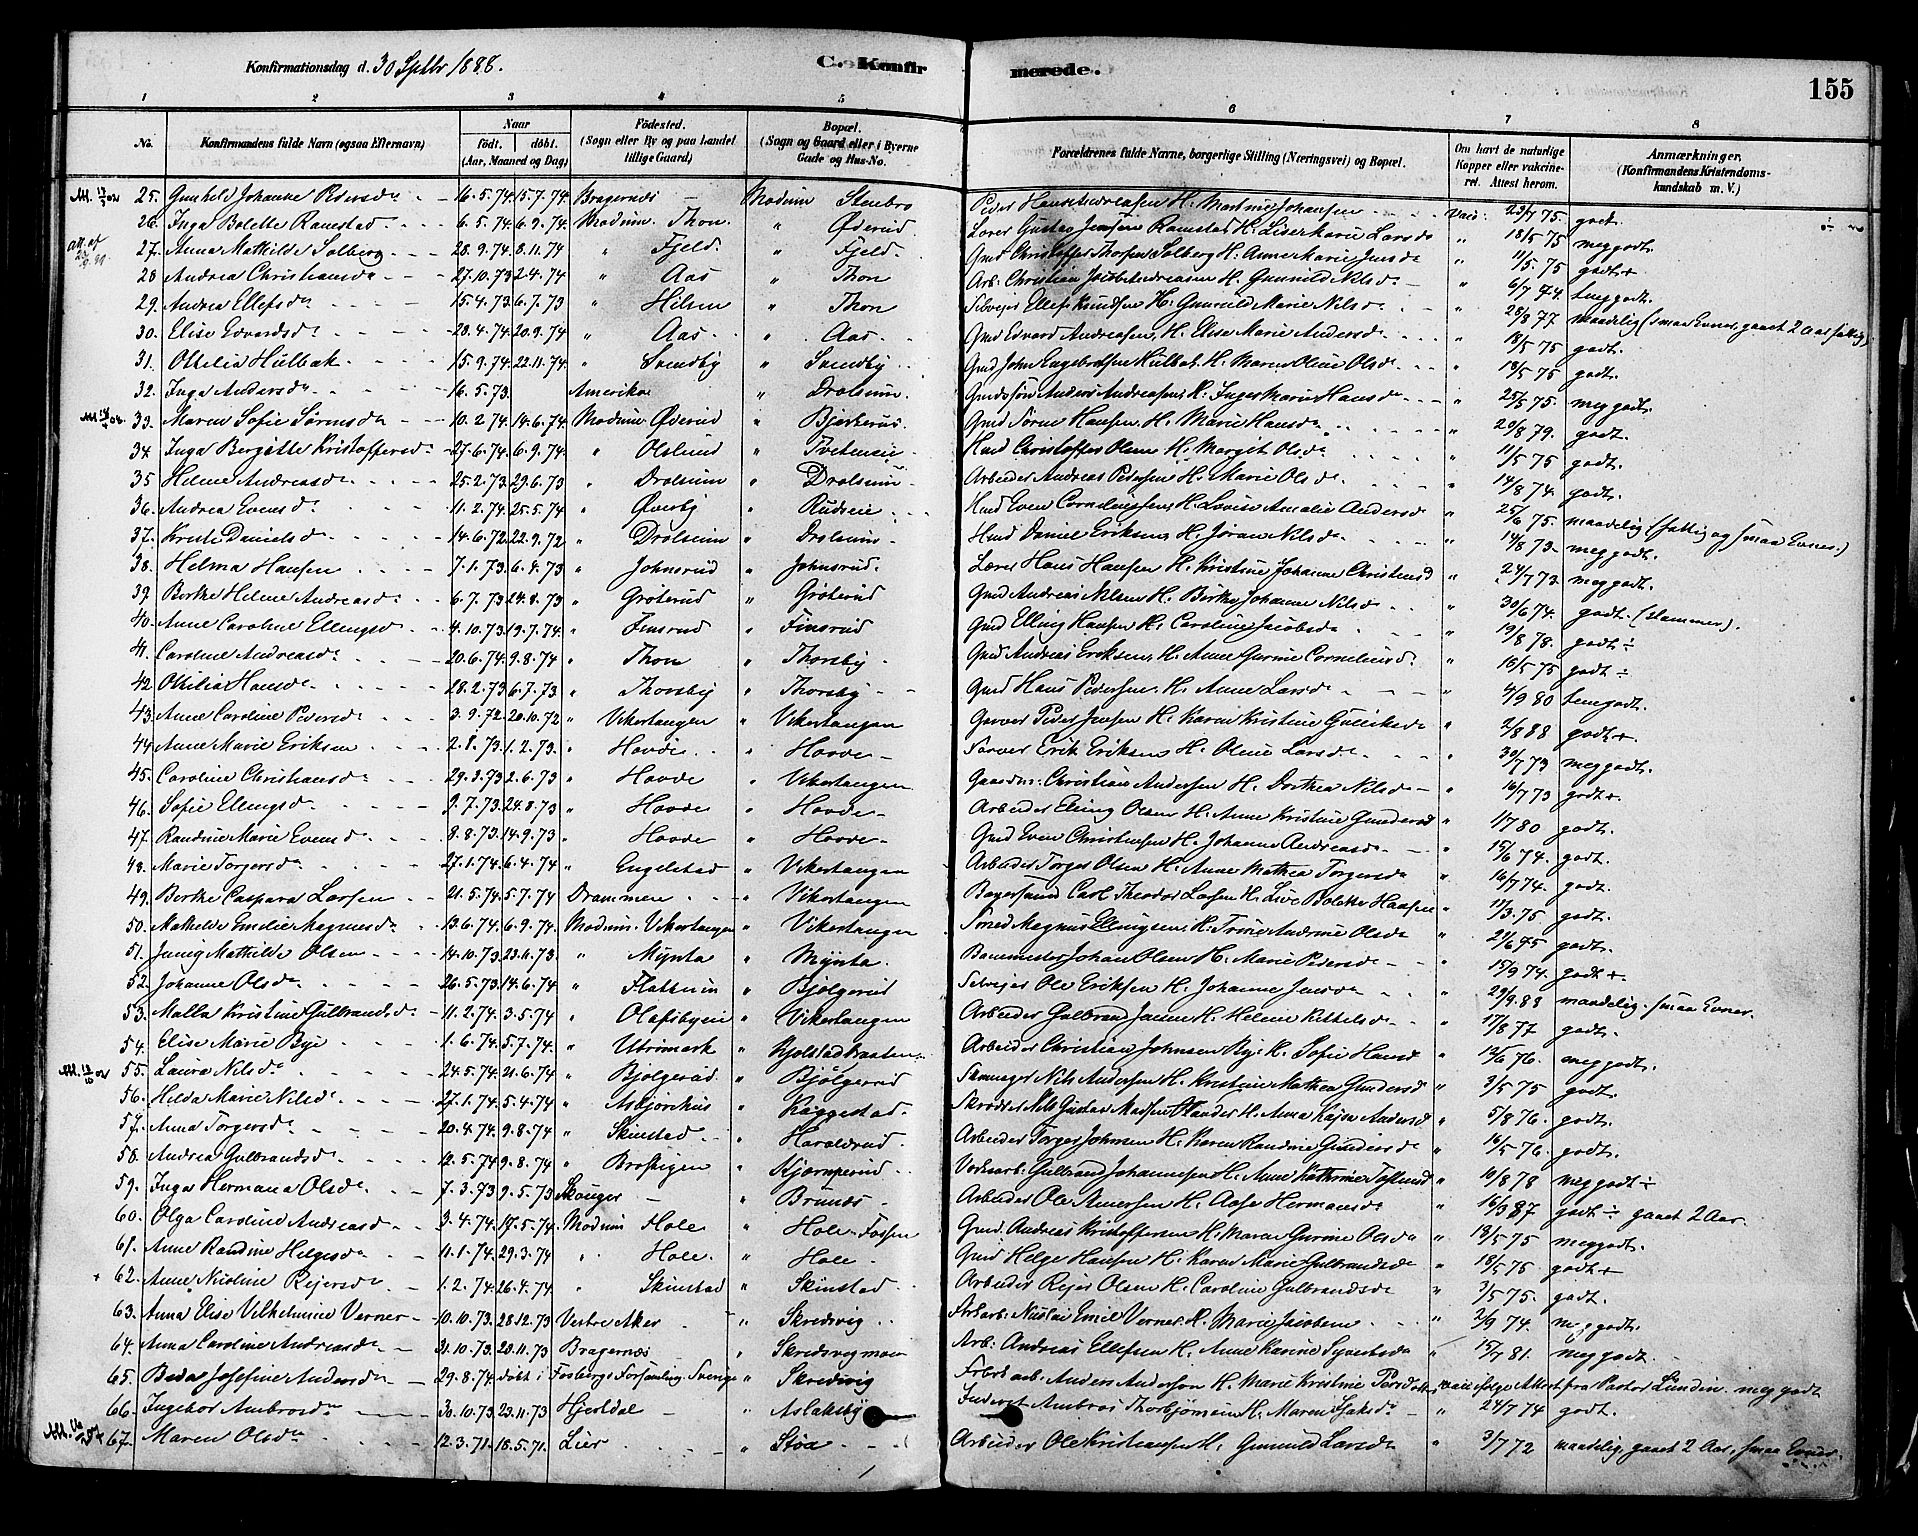 Konfirmationsdag d. 30 Septbr 1888.
C. Konfirmerede.
155
1 2 3 4 5 6 7 8
No. Konfirmandens fulde Navn (ogsaa Efternavn) Naar födt. döbt. (Aar, Maaned og Dag) Födested. (Sogn eller By og paa Landet tillige Gaard) Bopæl. (Sogn og Gaard eller i Byerne Gade og Hus-No. Forældrenes fulde Navne, borgerlige Stilling (Næringsvei) og Bopæl. Om havt de naturlige Kopper eller vakcineret. Attest herom. Anmærkninger. (Konfirmandens Kristendomskundskab m. V.)
25. Gunhild Johanne Pedersd. 16.5.74. 15.7.74 Bragernes Modum Stenbro Peder Hans Andreasen H. Mart. Johansen Vacc. 23/7 75. godt.
26. Inga Bolette Ramstad 6.5.74. 6.9.74. Modum Thon " Øderud Lærer Gustav Jensen Ramstad H. Liserkarie Larsd. " 18/5 75 meg godt.
27. Anna Mathilde Solberg 28.9.74. 8.11.74 " Fjeld. " Fjeld. Gmd Christoffer Thorsen Solberg H. Anne Marie Jensd. " 11/5.75 godt+
28 Andrea Christiansd. 27.10.73 2.4.74 " Aas " Thon Arb. Christian Jacob Andreasen H. Gunnild Nilsd. " 6/7 74. meg godt.
29. Andrea Ellefsd. 15.4.73. 6.7.73 " Helen " Thon Selvejer Ellef Knudsen H. Gunnild Marie Nilsd. " 28/8 77 maadelig (smaa Evner, gaaet 2 Aar fattig)
30. Elise Edvardsd. 28.4.74. 20.9.74 " Aas " Aas Gmd Edvard Andreasen, H. Elise Marie Andersd. " 18/5 75 godt.
31. Othilia Hulbak 15.9.74. 22.11.74 " Svendby " Svendby Gmd John Engebretsen Hulbak H. Maren Oline Olsd. " 18/5 75 godt.
32. Inga Andersd. 16.5.73. Amerika " Drolsum Gmdssøn Anders Andreasen, H. Inger Marie Hansd. " 25/5 75. meg godt.
33. Maren Sofie Sørensd. 10.2.74. 14.6.74. Modum Øderud " Bjerkerud. Gmd Søren Hansen, H. Marie Hansd. " 20/8 79. godt.
34. Inga Bergitte Kristoffersd. 27.6.74. 6.9.74. " Olslund " Tvetenseie Hmd Christoffer Olsen H. Margit Olsd. " 11/5 75 godt.
35 Helene Andreasd. 25.2.73. 29.6.73 " Drolsum " Drolsum Arbeider Andreas Pedersen H. Marie Olsd. " 14/8 74. godt.
36. Andrea Evensd. 11.2.74. 25.5.74 " Øverby " Rudseie Hmd Even Corneliussen, H. Lovise Amalie Andersd " 25/6 75. maadelig (fattig og smaa Evner.)
37. Kirsti Danielsd. 14.6.72. 22.9.72 " Drolsum " Drolsum Hmd Daniel Eriksen, H. Jøran Nilsd. " 14/8 73 meg godt.
38. Helma Hansen 7.1.73. 6.4.73 " Johnsrud " Johnsrud. Lærer Hans Hansen H. Kristine Johanne Christensd " 24/7 73 meg godt.
39. Berthe Helene Andreasd. 6.7.73. 24.8.73 " Grøterud " Grøterud Gmd Andreas Nilsen H. Berthe Johanne Nilsd. " 30/6 74. godt. (stammer).
40. Anne Caroline Ellingsd. 4.10.73. 19.7.74. " Finsrud " Finsrud Gmd Elling Hansen H. Caroline Jacobsd. " 19/8 78. godt ÷
41. Caroline Andreasd. 20.6.74. 9.8.74 " Thon " Thorsby Gmd Andreas Eriksen, H. Anne Gurine Corneliusd. " 18/5 75 godt ÷
42 Othilia Hansd. 28.2.73. 6.7.73 " Thorsby " Thorsby Gmd Hans Pedersen, H. Anne Larsd. " 4/9 80 temgodt.
43. Anne Caroline Pedersd. 3.9.72. 20.10.72 " Vikertangen " Vikertangen Garver Peder Jensen H. Karen Kristine Gulliksd. " 2/8 88 godt+.
44. Anne Marie Eriksen 2.1.73. 1.2.73. " Hovde " Hovde Farver Erik Eriksen H. Oline Larsd. " 30/7 73 meg godt.
45. Caroline Christiansd. 29.3.73 2.6.73 " Hovde " Vikertangen Gaardm. Christian Andersen H. Dorthea Nilsd. " 16/7 73 godt+.
46. Sofie Ellingsd. 9.7.73. 24.8.73 " Hovde " Hovde Arbeider Elling Olsen H. Anne Kristine Gundersd " 1/7 80 godt.
47. Randine Marie Evensd. 8.8.73. 14.9.73 " Hovde " Hovde Gmd Even Christensen H. Johanne Andreasd. " 15/6 74. godt.
48. Marie Torgersd. 27.1.74. 6.4.74 " Engelstad " Vikertangen Arbeider Torger Olsen H. Anne Mathea Torgersd. " 16/7 74. godt.
49. Berthe Caspara Larsen 21.5.74. 5.7.74 Drammen " Vikertangen Bøgersvend Carl Theodor Larsen H. Live Bolette Hansen " 17/3.75 godt.
50. Mathilde Emilie Magnusd. 13.6.74. 6.9.74 Modum Vikertangen " Vikertangen Smed Magnus Ellingsen, H. Trine Andrine Olsd. " 21/6 75 godt.
51. Jenny Mathilde Olsen 14.10.73. 23.11.73. " Mynta " Mynta. Banemester Johan Olsen H. Marie Pedersd. " 15/9 74. godt +.
52. Johanne Olsd. 26.5.73. 14.6.74 " Flattum " Bjølgerud Selvejer Ole Eriksen H. Johanne Jensd. " 29/9.88 maadelig. smaa Evner.
53. Malla Kristine Gulbrandsd. 11.2.74. 3.5.74 " Olafsbyeie " Vikertangen Arbeider Gulbrand Jansen H. Helene Kittelsd. " 17/8 77 godt.
54. Elise Marie Bye 1.6.74. 5.7.74. " Utvimark " Gjølstadbraaten Arbeider Christian Johnsen Bye H. Sofie Hansd " 19/6 76. meg godt.
55. Laura Nilsd. 24.5.74. 21.6.74 " Bjølgerud " Bjølgerud Skomager Nils Andersen H. Kristine Mathea Gundersd " 3/5 75 godt.
56. Helda Marie Nilsd. 27.1.74. 5.4.74 " Asbjørnhus " Kaggestad. Skrædder Nils Gustav Madsen Flander H. Anna Kajsa Andersd " 5/8 76. godt.
57. Anna Torgersd. 20.4.74. 9.8.74 " Skinstad " Haraldrud. Arbeider Torger Johnsen H. Karen Randine Gundersd. " 16/5 76. godt.
58. Andrea Gulbrandsd. 12.5.74 9.8.74 " Brostigen " Kjørnperud Værksarb. Gulbrand Johannesen H. Anne Kathrine Tostensd " 10/8 78 meg godt ÷
59. Inga Hermana Olsd. 7.3.73 9.5.73 Skouger " Brunes Arbeider Ole Amersen H. Aase Hermansd. " 16/3 87 godt ÷ gaaet 2 Aar.
60. Olga Caroline Andreasd. 3.4.74. 17.5.74 Modum Hole " Hole Fossen Gmd. Andreas Kristoffersen H. Maren Gurine Olsd. " 18/5 75 meg godt.
61. Anne Randine Helgesd. 11.1.74. 29.3.74 " Hole. " Hole Gmd Helge Hansen H. Karen Marie Gulbrandsd. " 18/5 75. godt+
+ 62. Anne Nicoline Rejersd. 1.2.74. 26.4.74. " Skinstad " Skinstad Arbeider Rejer Olsen H. Caroline Gulbrandsd. " 3/5 75. godt.
63. Anna Elise Vilhelmine Verner 10.10.73. 28.12.73 Vestre Aker " Skredsvig Fabrarb. Nicolai Emil Verner H. Marie Jacobsen " 2/9 74. meg godt.
64. Anna Caroline Andreasd. 31.10.73. 23.11.73 Bragernes " Skredsvigmoen Arb. Andreas Ellefsen H. Anne Karine Syversd. " 15/7 81. meg godt.
65. Beda Josefine Andersd. 29.8.74 døbt i Fosbergs Forsamling Sverige " Skredsvig Fabrikarb. Anders Andersson H. Marie Kristine vacc. ifølge Attest fra Pastor Lundin. meg godt
66. Ingebor Ambrosd. 30.10.73. 23.11.73 Hjertdal " Aslaksby Inderst Ambros Thorbjørnsen H. Maren Isaksd. " 24/7 74 godt.
67. Maren Olsd. 12.3.71. 18.5.71. Lier " Støa Arbeider Ole Kristiansen H. Gunnild Larsd. " 3/7 72 maadelig, gaaet 2 Aar, smaa Evner.